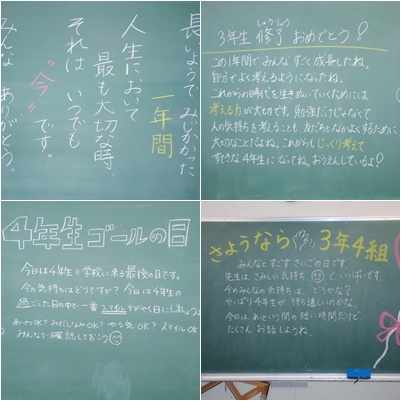 長いようでみじかかった
一年間
人生において
最も大切な時、
それは いつでも
"今"です。
みんな ありがとう。
しゅうりょう
3年生 修了 おめでとう!
この1年間で みんな すごく成長したね。
自分でよく考えるようになったね。
これからの時代を生きぬいていくためには
考える力が大切です。勉強だけじゃなくて
人の気持ちを考えることも 友だちとなかよくするために
大切なことだよね。これからも じっくり考えて
すてきな4年生に なってね。おうえんしているよ!
4年生ゴールの日
今日は4年生で学校に来る最後の日です。
今の気持ちはどうですか? 今日は4年生の
過ごした日の中で一番 スマイルがかがやく日にしましょう
あいさつOK? みだしなみOK? やる気OK? スマイルOK
みんなで確認しておこう
さようなら 3年4組
みんなとすごす さいごの日です。
先生は、さみしい気持ち で いっぱいです。
今のみんなの気持ちは、どうかな?
やっぱり4年生が 待ち遠しいのかな。
今日は、あっという間の 短い時間だけど、
たくさん お話ししようね。